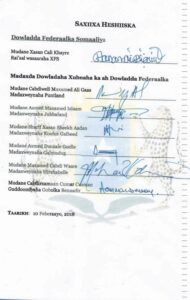 SAXIIXA HESHIISKA
Dowladda Federaalka Somaaliya
Mudane Xasan Cali Khayre
Ra'isal wasaaraha XFS
Madaxda Dowladaha Xubnaha ka ah Dowladda Federaalka
Mudane Cabdiweli Maxamed Ali Gaas
Madaxweynaha Puntland
Mudane Axmed Maxamed Islaam
Madaxweynaha Jubbaland
Mudane Shariif Xasan Sheekh Aadan
Madaxweynaha Koofur Galbeed
Mudane Axmed Ducaale Geelle
Madaxweynaha Galmudug
Mudane Maxamed Cabdi Waare
Madaxweynaha Hirshabelle
Mudane Cabdiraxmaan Cumar Cismaan
Guddoomiyaha Gobolka Banaadir
TAARIIKH: 10 Febraayo, 2018